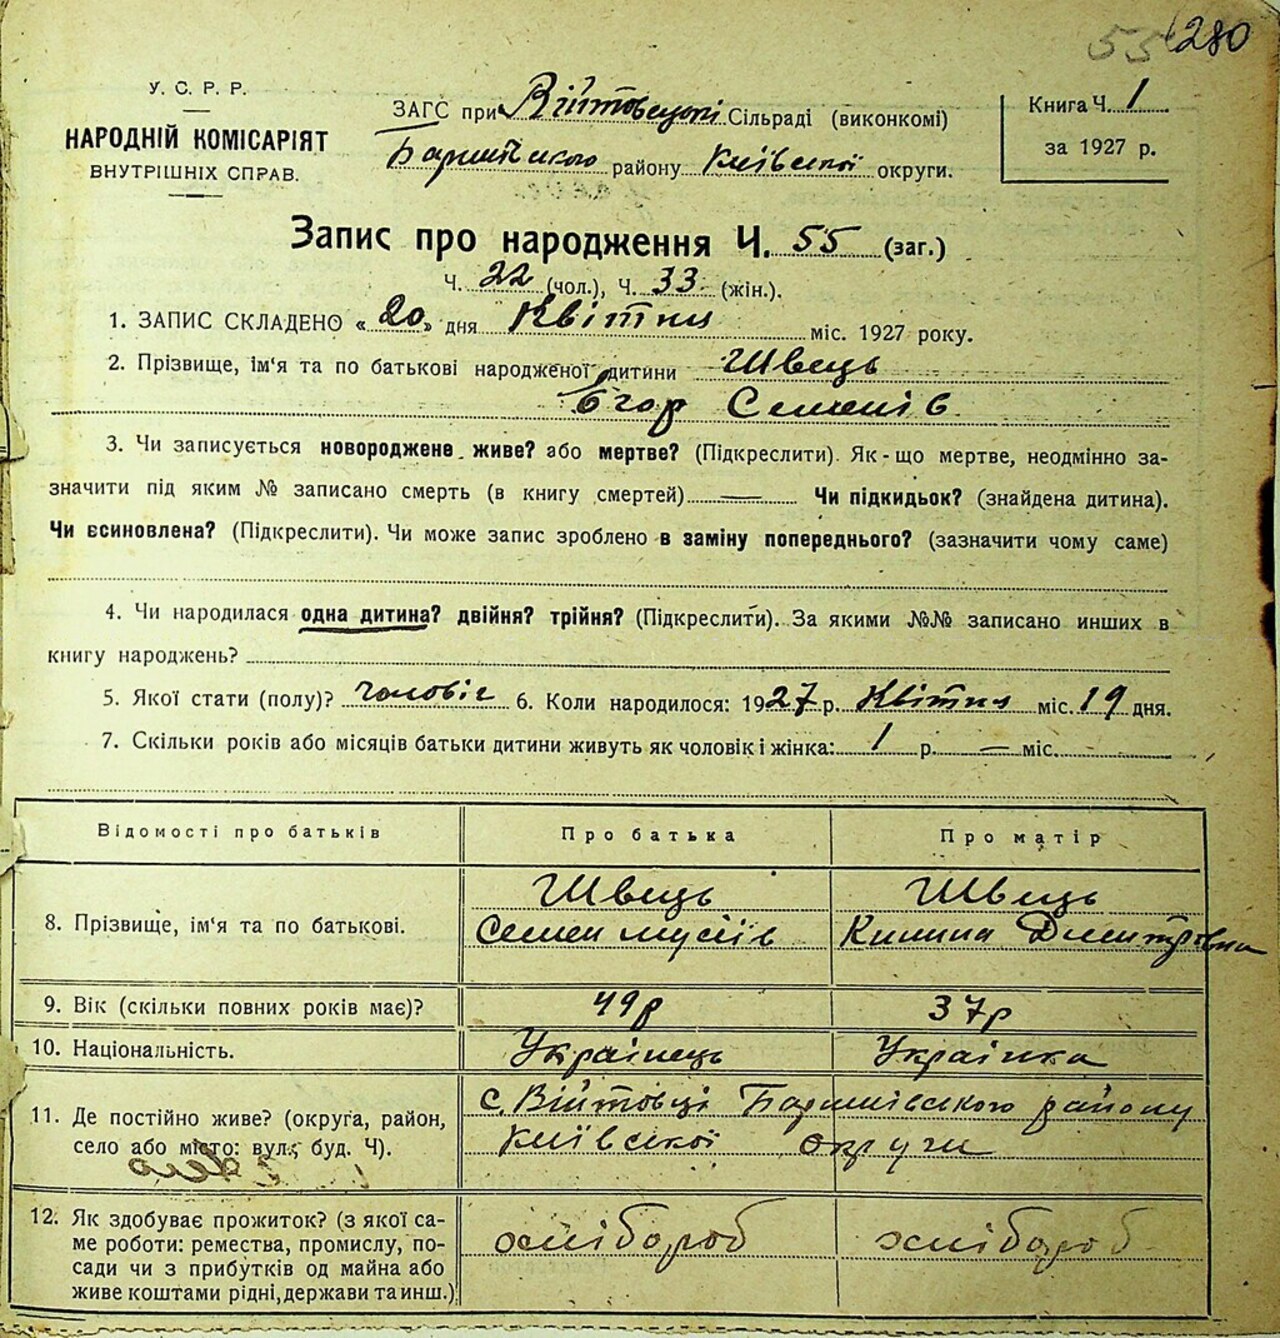 55 280
У. С. Р. Р.
НАРОДНІЙ КОМІСАРІЯТ
ВНУТРІШНІХ СПРАВ.
ЗАГС при Війтовецькі Сільраді (виконкомі)
Баришівського району Київської округи.
Книга Ч. 1
за 1927 р.
Запис про народження Ч. 55 (заг.)
Ч. 22 (чол.), Ч. 33 (жін.).
1. ЗАПИС СКЛАДЕНО «20» дня Квітня міс. 1927 року.
2. Прізвище, ім'я та по батькові народженої дитини Швець
Єгор Семенів
3. Чи записується новороджене живе? або мертве? (Підкреслити). Як-що мертве, неодмінно за-
значити під яким № записано смерть (в книгу смертей) — Чи підкидьок? (знайдена дитина).
Чи всиновлена? (Підкреслити). Чи може запис зроблено в заміну попереднього? (зазначити чому саме)
4. Чи народилася одна дитина? двійня? трійня? (Підкреслити). За якими №№ записано инших в
книгу народжень?
5. Якої стати (полу)? чоловіч 6. Коли народилося: 1927 р. Квітня міс. 19 дня.
7. Скільки років або місяців батьки дитини живуть як чоловік і жінка: 1 р. — міс.
Відомості про батьків Про батька Про матір
8. Прізвище, ім'я та по батькові. Швець Швець
Семен Мусіїв Килина Дмитрівна
9. Вік (скільки повних років має)? 49 р 37 р
10. Національність. Українець Українка
11. Де постійно живе? (округа, район,
село або місто: вул., буд. Ч).
с. Війтовці Баришівського району
Київської округи
12. Як здобуває прожиток? (з якої са-
ме роботи: ремества, промислу, по-
сади чи з прибутків од майна або
живе коштами рідні, держави та инш.)
хлібороб хлібороб